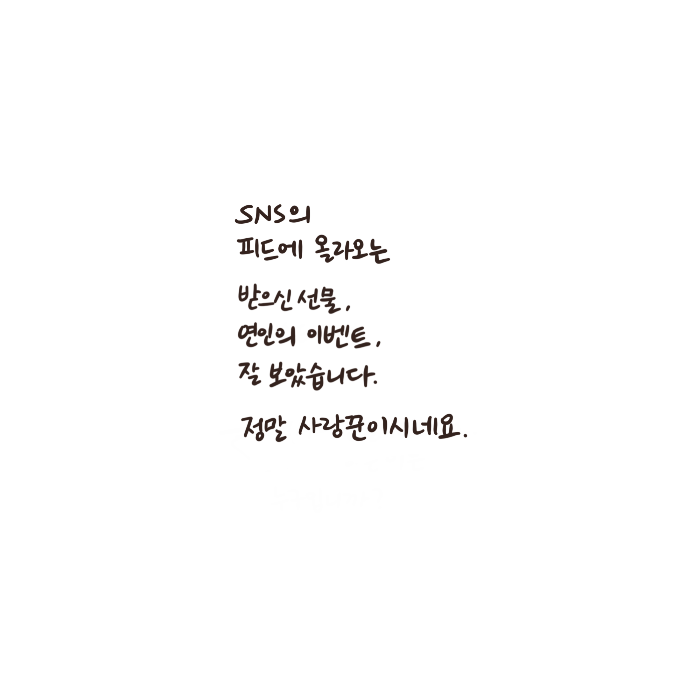 SNS의
피드에 올라오는
받으신 선물,
연인의 이벤트,
잘 보았습니다.
정말 사랑꾼이시네요.